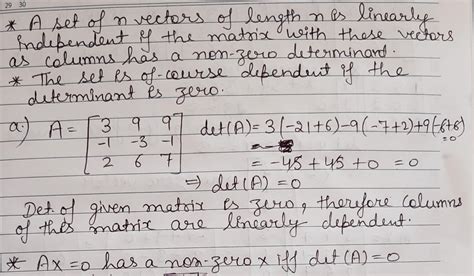 29 30
* A set of n vectors of length n is linearly
independent if the matrix with these vectors
as columns has a non-zero determinant.
* The set is of-course dependent if the
determinant is zero.
a) A = [3 9 9 det(A) = 3(-21+6)-9(-7+2)+9(-6+6)
-1 -3 -1 =0
2 6 7] = -45 + 45 + 0 = 0
⇒ det(A) = 0
Det. of given matrix is zero, therefore columns
of this matrix are linearly dependent.
* Ax=0 has a non-zero x iff det(A)=0